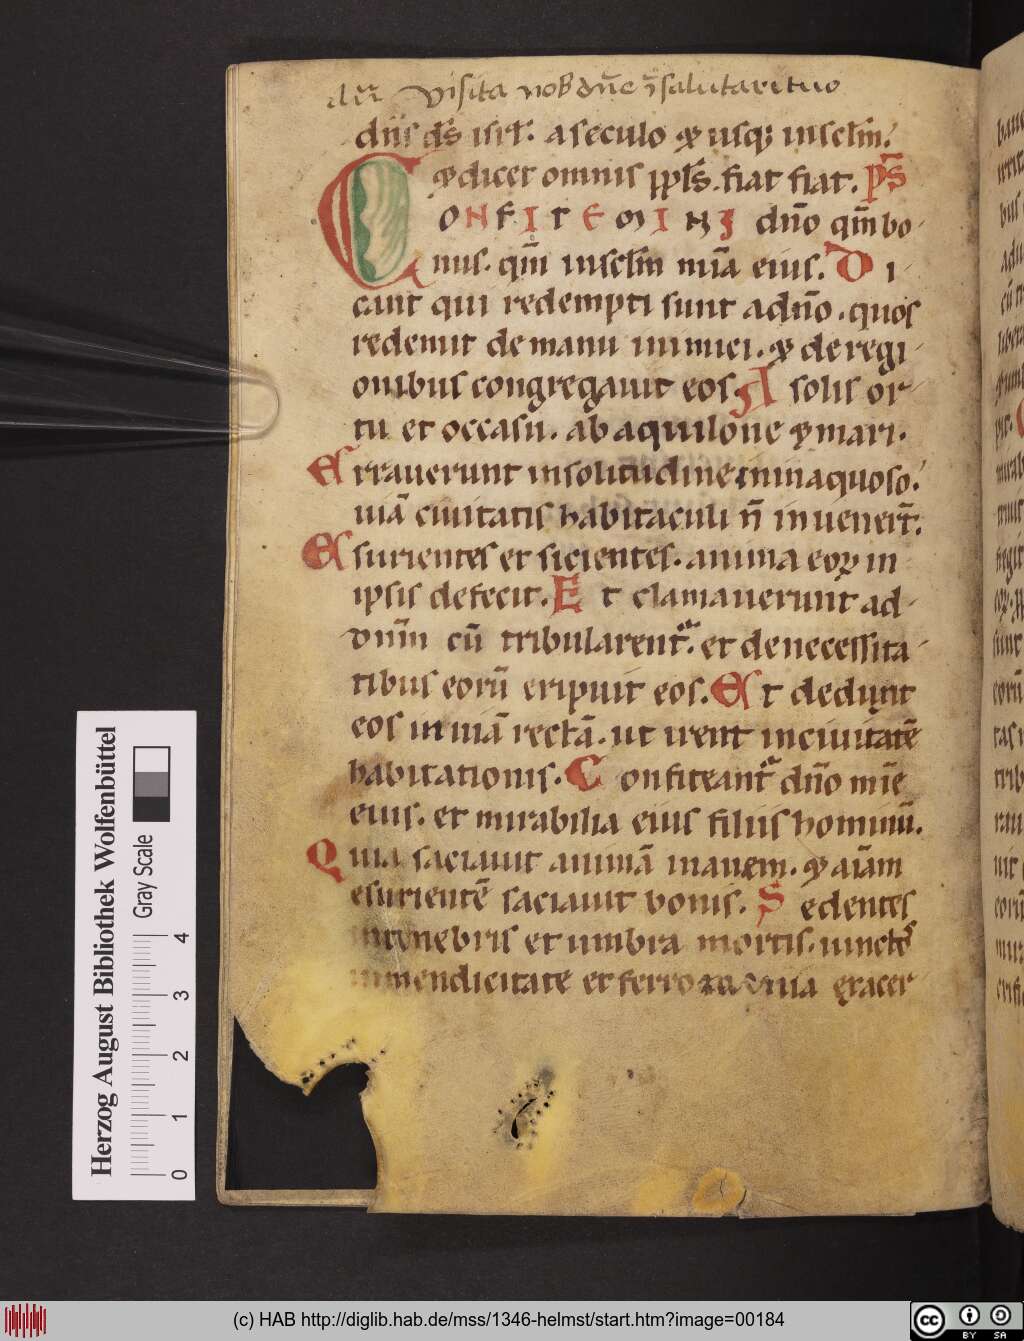 visita nob dn̄e ī salutari tuo
dn̄s ds̄ isrl̄. a seculo ⁊ usq; in sclm̄.
⁊ dicet omnis ppls̄. fiat fiat. Ps̄
CONFITEMINI dn̄o qm̄ bo
nus. qm̄ in sclm̄ mīa eius. Di
cant qui redempti sunt a dn̄o. quos
redemit de manu inimici. ⁊ de regi
onibus congregauit eos. A solis or
tu et occasu. ab aquilone ⁊ mari.
Errauerunt in solitudine in inaquoso.
uiā ciuitatis habitaculi n̄ inuener̄t.
Esurientes et sicientes. anima eoꝝ in
ipsis defecit. Et clamauerunt ad
dnm̄ cū tribularent᷑. et de necessita
tibus eorū eripuit eos. Et deduxit
eos in uiā rectā. ut irent in ciuitatē
habitationis. Confiteant᷑ dn̄o mīe
eius. et mirabilia eius filiis hominū.
Quia saciauit animā inanem. ⁊ aīam
esurientē saciauit bonis. Sedentes
in tenebris et umbra mortis. uinctos
in mendicitate et ferro
Herzog August Bibliothek Wolfenbüttel
Gray Scale
0 1 2 3 4
(c) HAB http://diglib.hab.de/mss/1346-helmst/start.htm?image=00184
cc BY SA